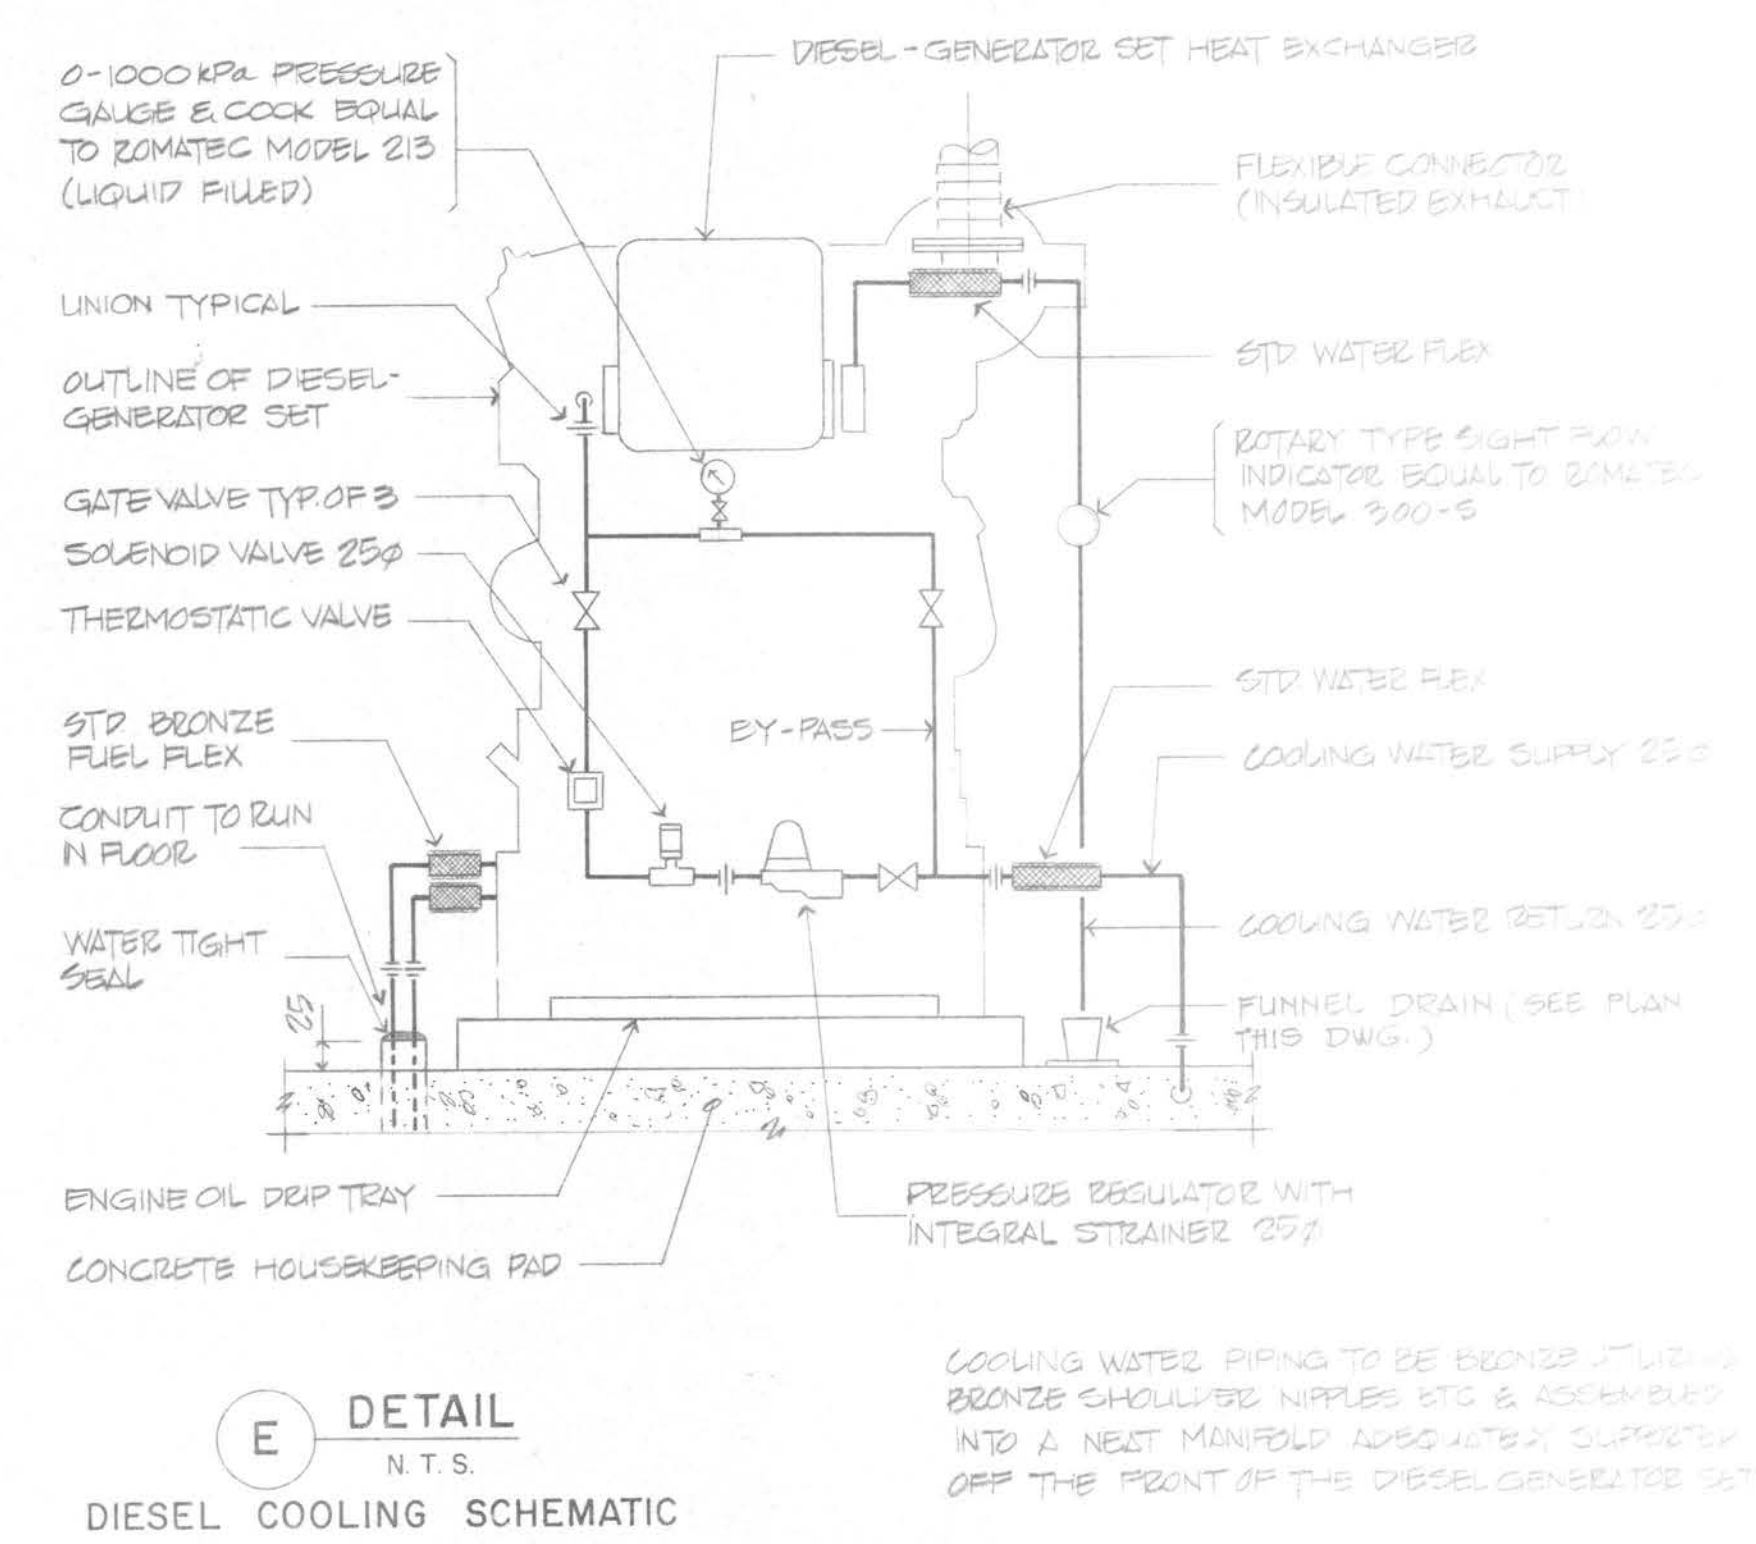 0-1000 kPa PRESSURE
GAUGE & COCK EQUAL
TO ROMATEC MODEL 213
(LIQUID FILLED)
UNION TYPICAL
OUTLINE OF DIESEL-
GENERATOR SET
GATE VALVE TYP. OF 3
SOLENOID VALVE 25ø
THERMOSTATIC VALVE
STD. BRONZE
FUEL FLEX
CONDUIT TO RUN
IN FLOOR
WATER TIGHT
SEAL
52
ENGINE OIL DRIP TRAY
CONCRETE HOUSEKEEPING PAD
DIESEL-GENERATOR SET HEAT EXCHANGER
FLEXIBLE CONNECTOR
(INSULATED EXHAUST)
STD WATER FLEX
ROTARY TYPE SIGHT FLOW
INDICATOR EQUAL TO ROMATEC
MODEL 300-S
BY-PASS
STD. WATER FLEX
COOLING WATER SUPPLY 25ø
COOLING WATER RETURN 25ø
FUNNEL DRAIN (SEE PLAN
THIS DWG.)
PRESSURE REGULATOR WITH
INTEGRAL STRAINER 25ø
COOLING WATER PIPING TO BE BRONZE UTILIZING
BRONZE SHOULDER NIPPLES ETC & ASSEMBLED
INTO A NEAT MANIFOLD ADEQUATELY SUPPORTED
OFF THE FRONT OF THE DIESEL GENERATOR SET
E
DETAIL
N.T.S.
DIESEL COOLING SCHEMATIC